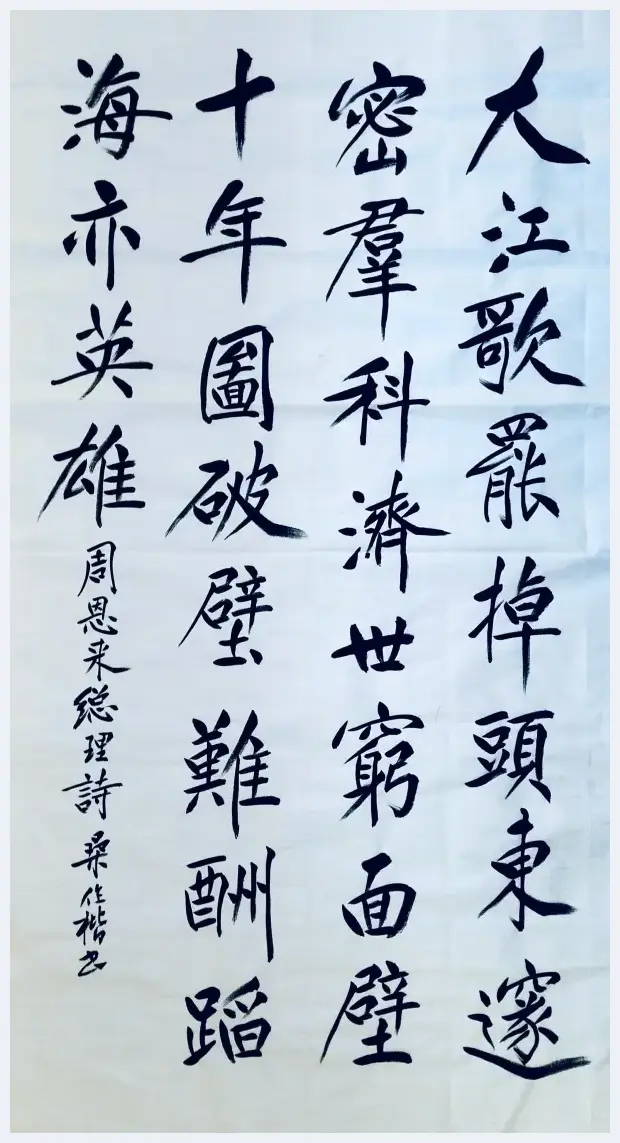 大江歌罷掉頭東邃
密羣科濟世窮面壁
十年圖破壁難酬蹈
海亦英雄
周恩来總理詩 桑 楷书